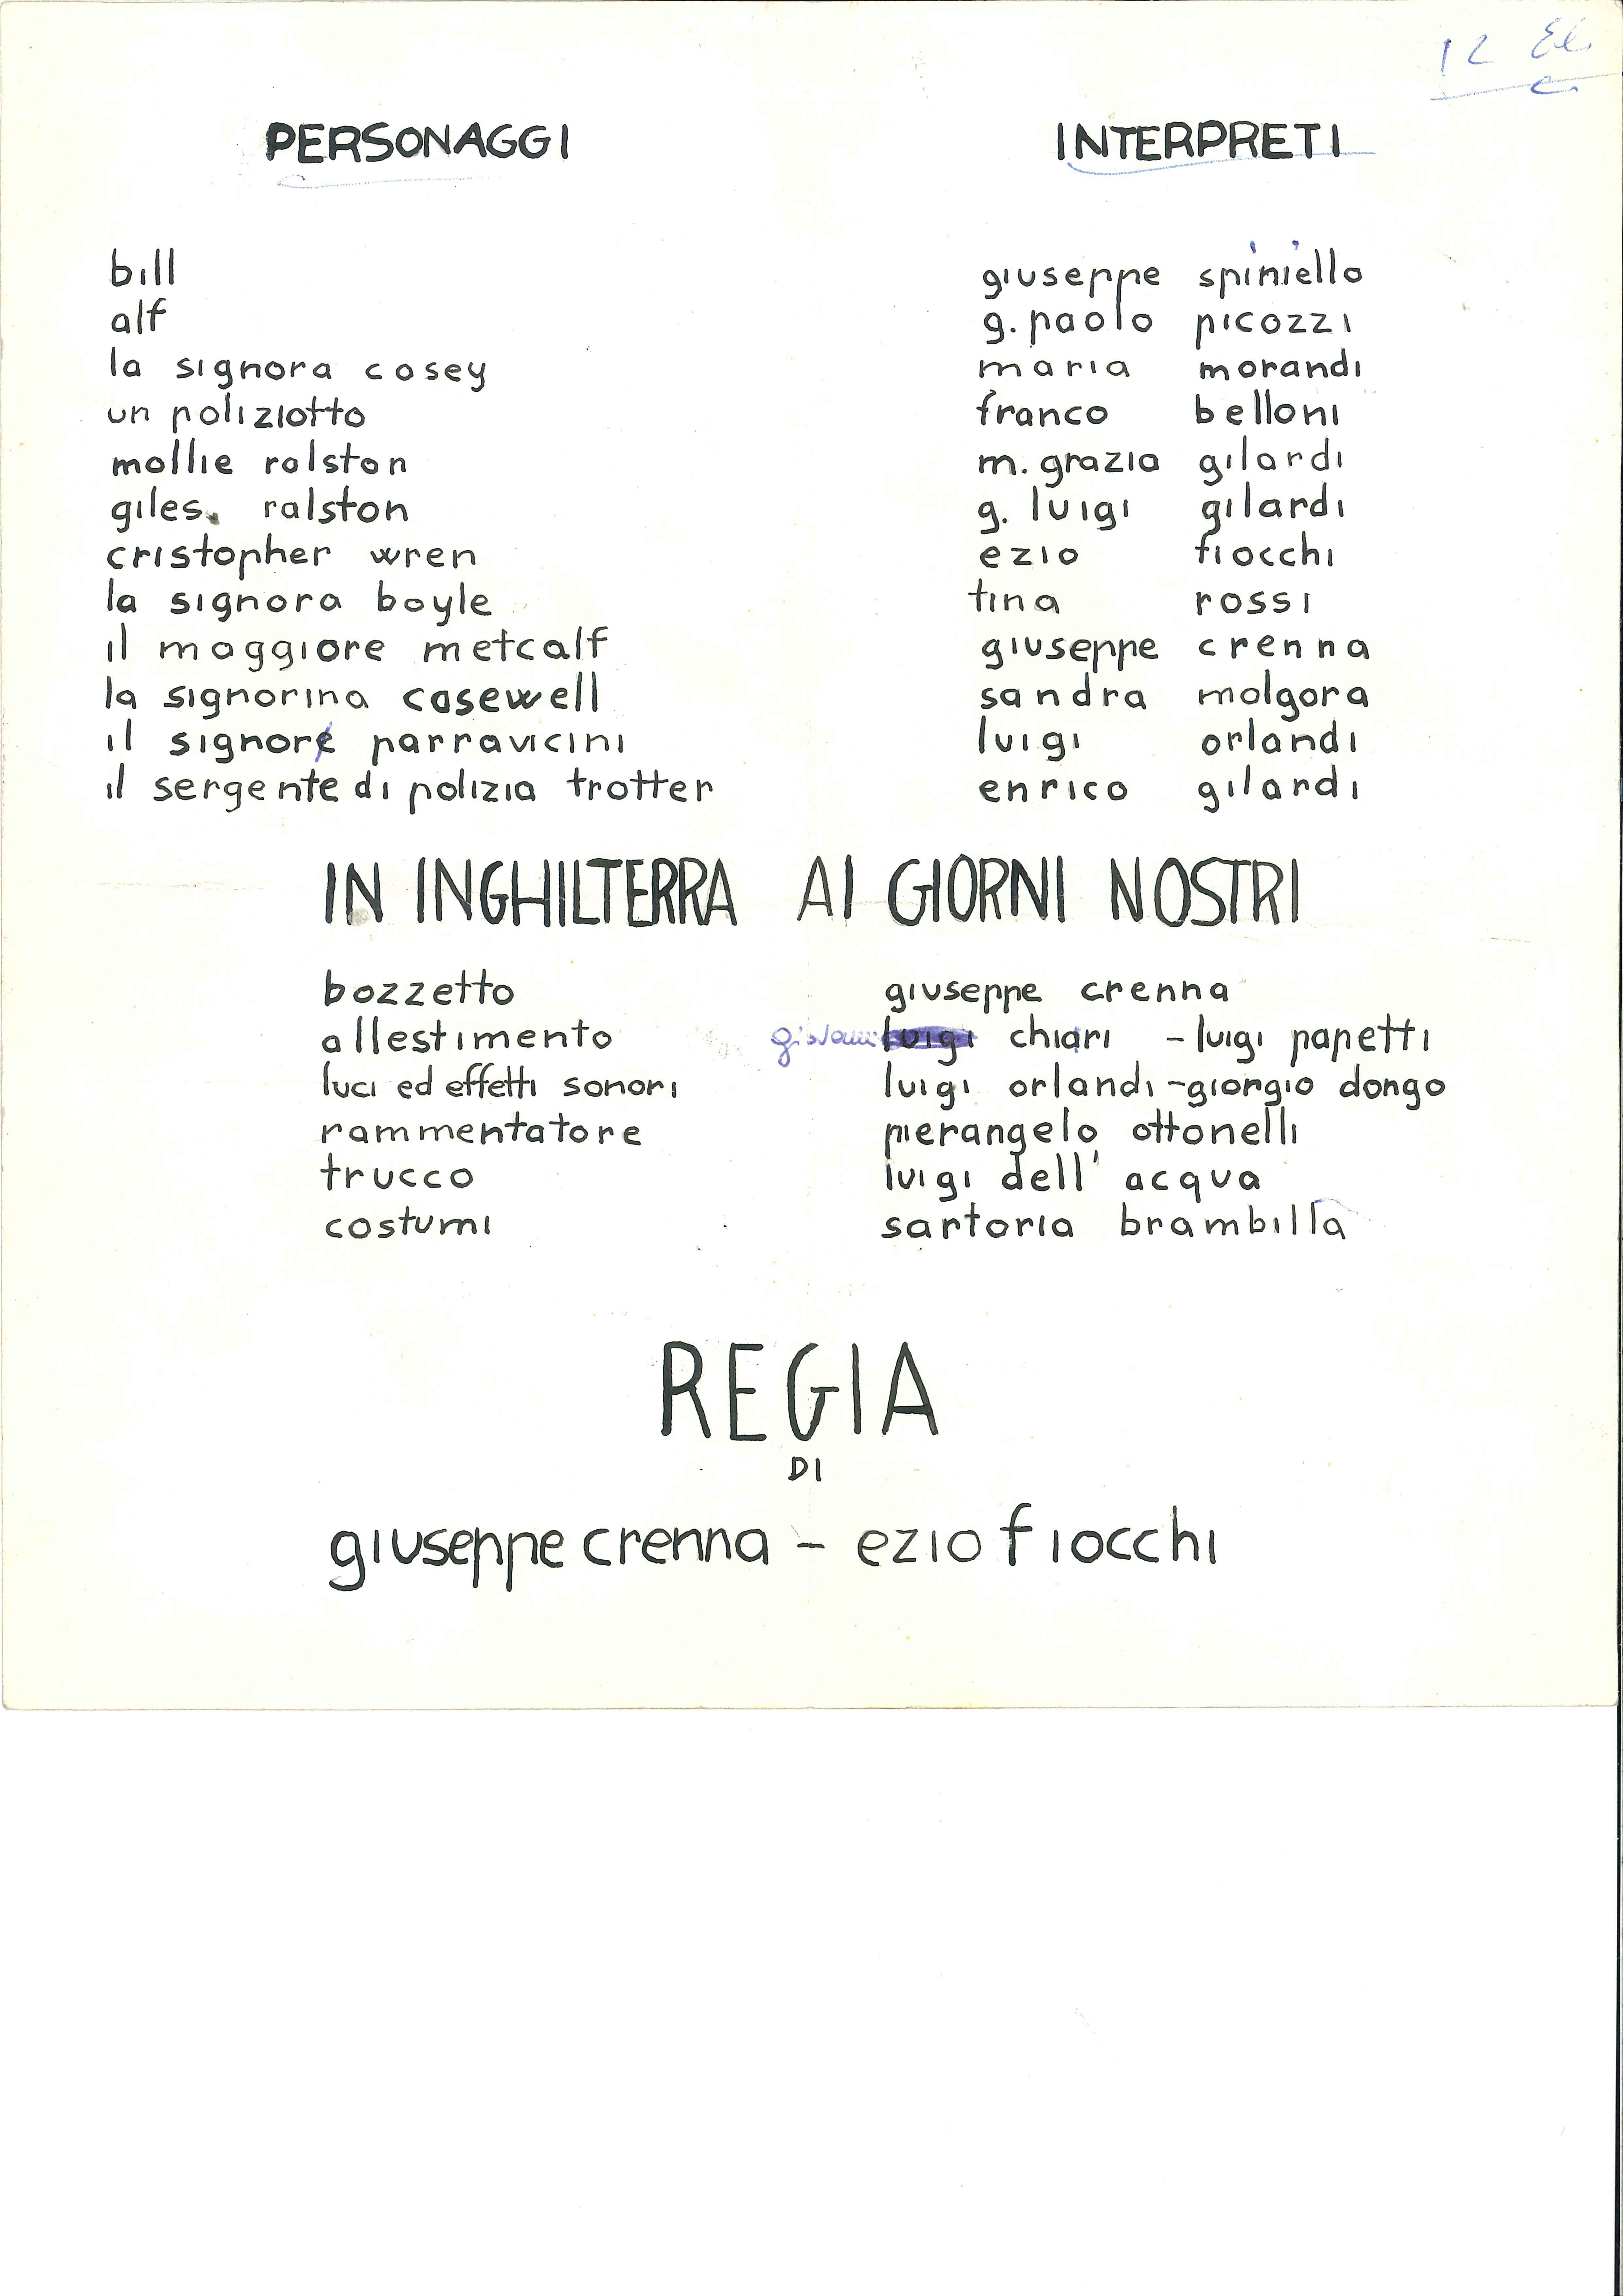 12
PERSONAGGI INTERPRETI
bill giuseppe spiniello
alf g. paolo picozzi
la signora casey maria morandi
un poliziotto franco belloni
mollie ralston m. grazia gilardi
giles. ralston g. luigi gilardi
cristopher wren ezio fiocchi
la signora boyle tina rossi
il maggiore metcalf giuseppe crenna
la signorina casewell sandra molgora
il signore parravicini luigi orlandi
il sergente di polizia trotter enrico gilardi
IN INGHILTERRA AI GIORNI NOSTRI
bozzetto giuseppe crenna
allestimento giovanni luigi chiari - luigi papetti
luci ed effetti sonori luigi orlandi - giorgio dongo
rammentatore pierangelo ottonelli
trucco luigi dell' acqua
costumi sartoria brambilla
REGIA
DI
giuseppe crenna - ezio fiocchi